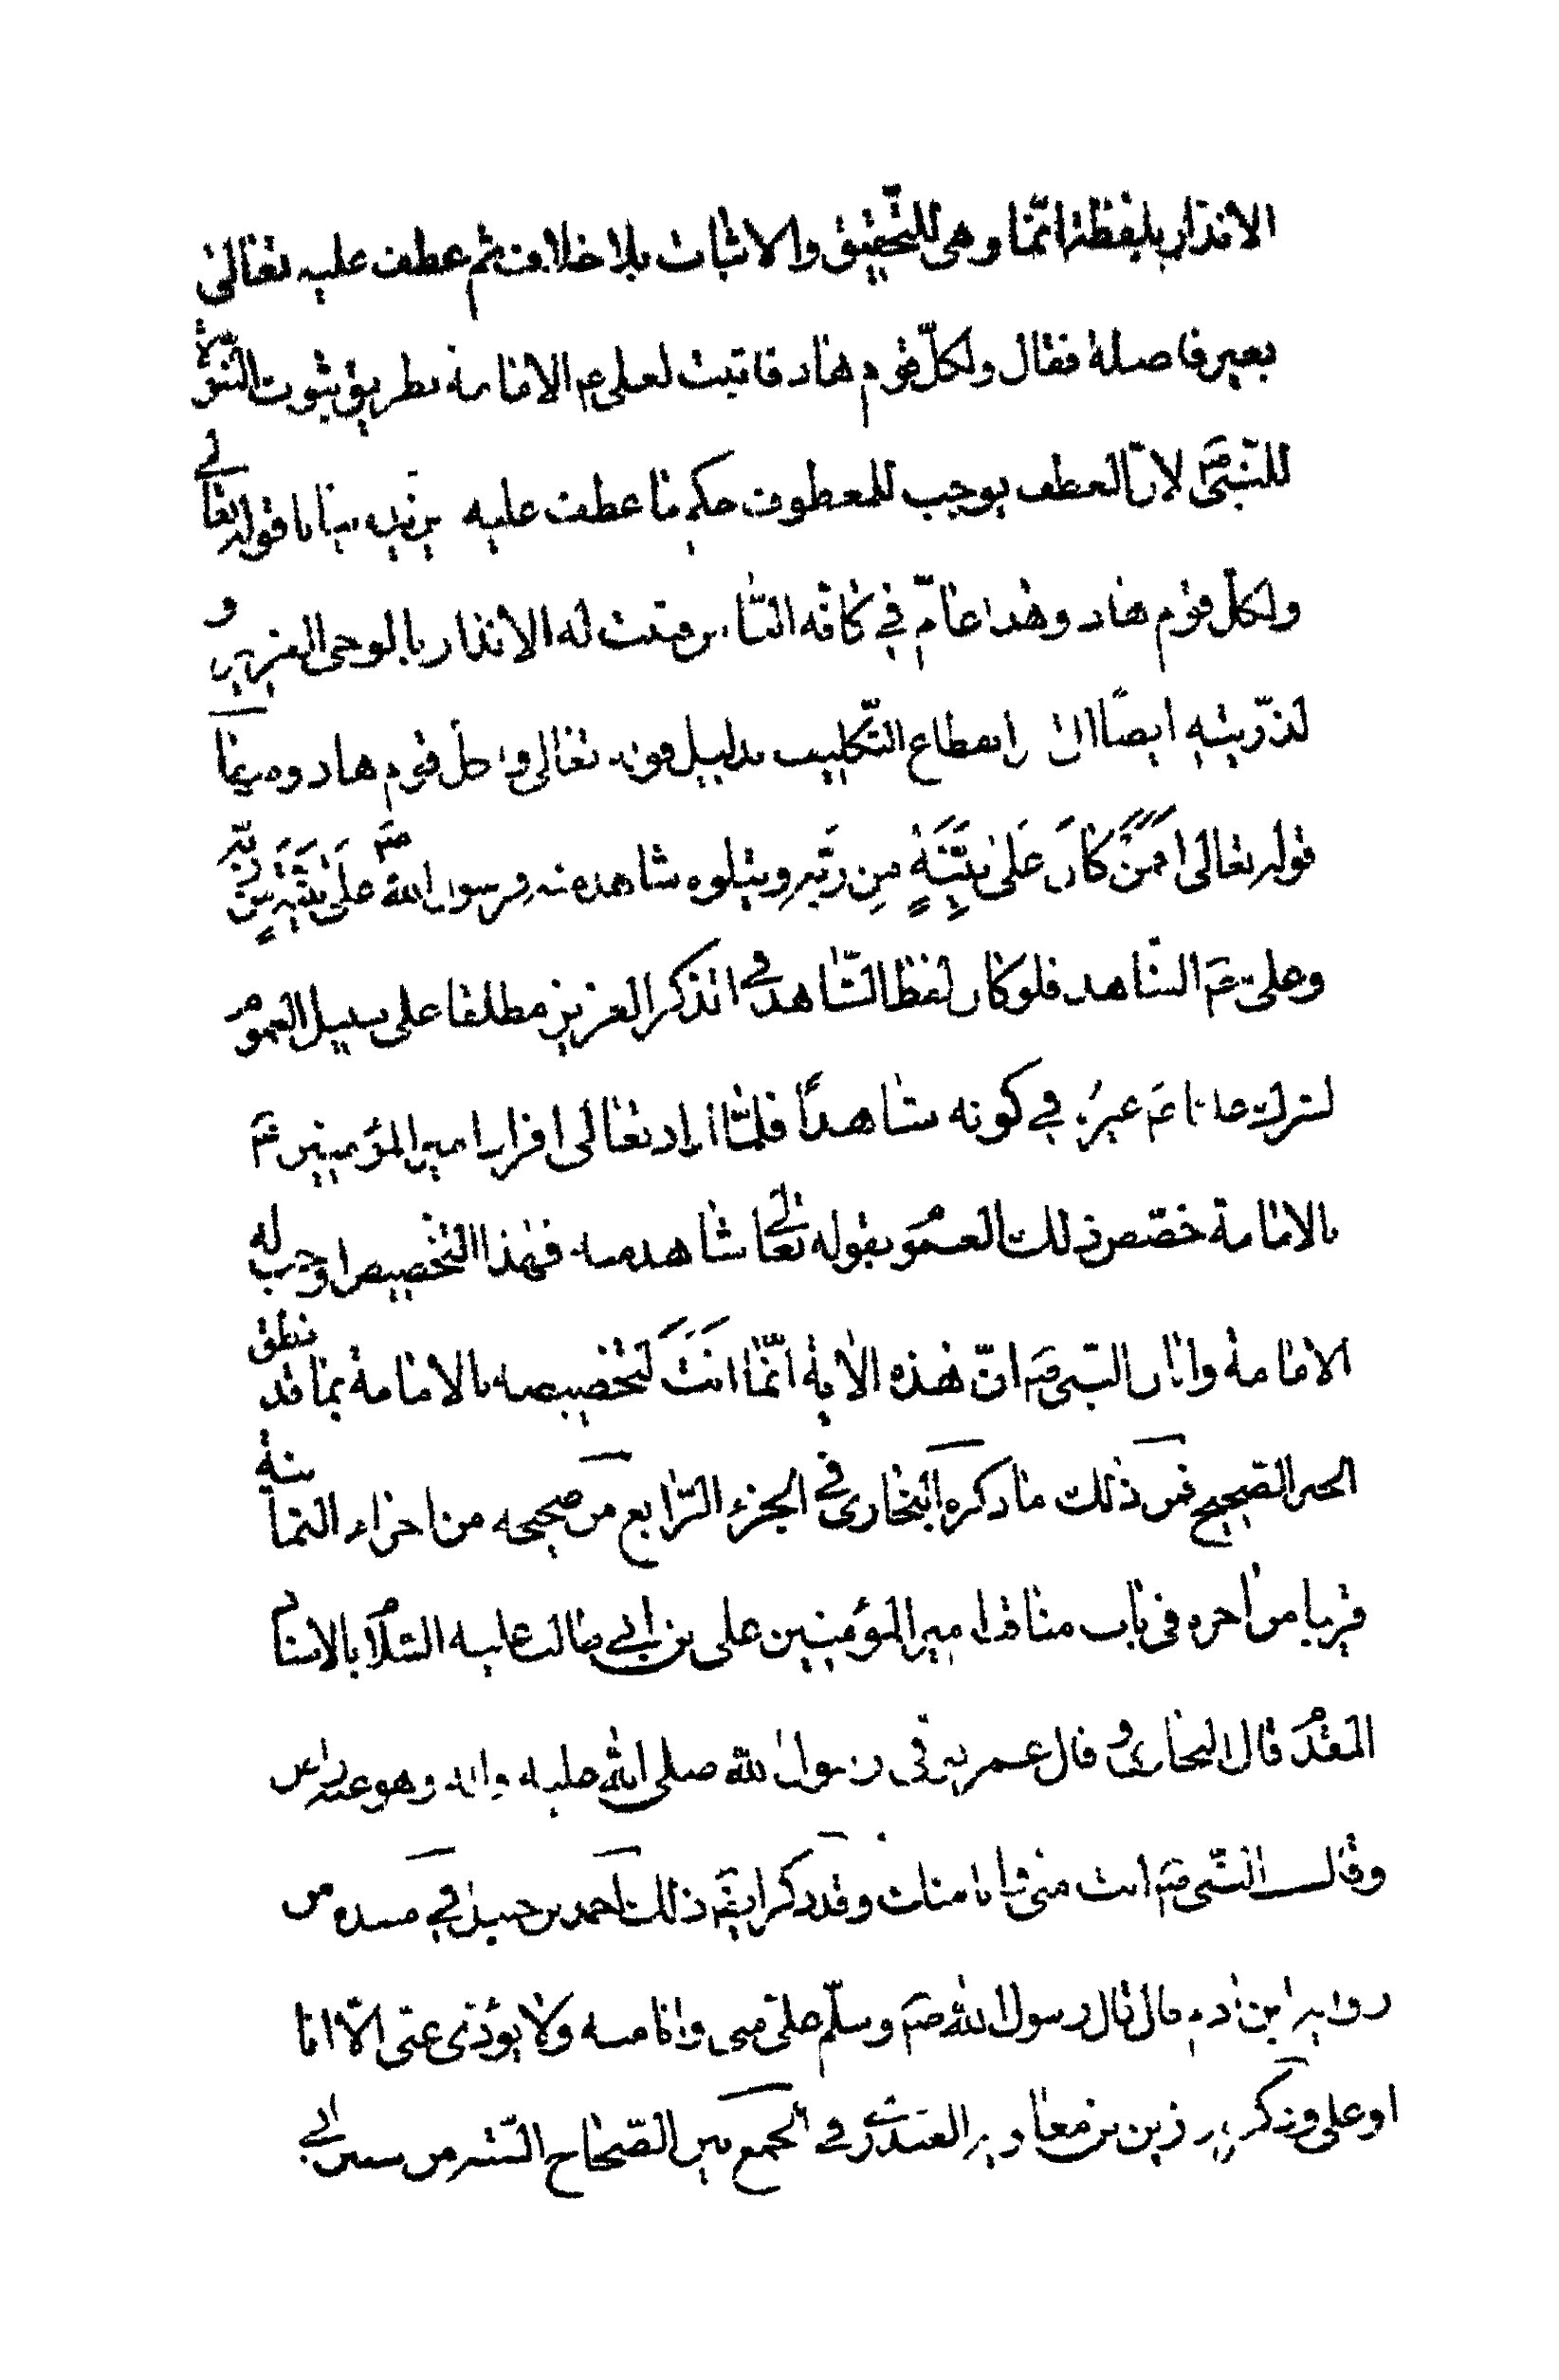 الانذار بلفظة انّما وهى للتّحقيق والاثبات بلا خلاف ثم عطف عليه تعالى
بغير فاصلة فقال ولكلّ قوم هاد فاثبت لعلى ع م الامامة بطريق ثبوت النبوّة
للنّبىّ ص لانّ العطف يوجب للمعطوف حكم ما عطف عليه يزيده بيانا قوله تعالى
ولكلّ قوم هاد وهذا عامّ في كافّه النّاس فيثبت له الانذار بالوحى العزيز و
لذرّيته ايضًا الى انقطاع التّكليف بدليل قوله تعالى ولكل قوم هاد ومنها
قوله تعالى اَفَمَنْ كانَ عَلى بَيِّنَةٍ مِن رَبّه ويتلوه شاهد منه فرسول الله ص على بيّنة من ربّه
وعلى ع م الشّاهد فلو كان لفظ الشّاهد في الذكر العزيز مطلقا على سبيل العموم
لشرك عليّا ع م غيره في كونه شاهدًا فلمّا اراد تعالى افراد امير المؤمنين ع م
بالامامة خصّص ذلك العموم بقوله تعالى شاهد منه فهذا التخصيص اوجب له
الامامة وابان النّبى ص م انّ هذه الاية انّما اتت لتخصيصه بالامامة بما قد نطق
الخبر الصّحيح فمن ذلك ما ذكره البخارى في الجزء الرّابع من صحيحه من اجزاء الثمانية
قريبا من اخره فى باب مناقب امير المؤمنين على بن ابي طالب عليه السّلام بالاسناد
المقدّم قال البخارى وقال عمر توفّى رسول الله صلى الله عليه واله وهو عنه راض
وقال النّبى ص م انت منّى وانا منك وقد ذكر ايضَم ذلك احمد بن حنبل في مسنده من
رواية ابن ادم قال قال رسول الله ص م وسلّم علىّ منى وانا منه ولا يؤدّى عنى الّا انا
او على وذكره رزين بن معاوية العبدرى في الجمع بين الصّحاح السّتّة من سنن ابي